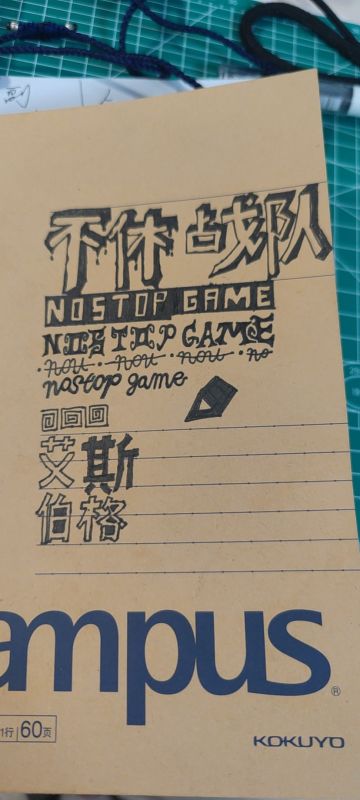 不休战队
NOSTOP GAME
NOSTOP GAME
nou nou nou no
nostop game
回回回
艾斯
伯格
ampus®
1行 60页
KOKUYO